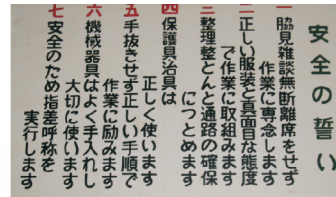 安全の誓い
一 脇見雑談無断離席をせず
作業に専念します
二 正しい服装と真面目な態度
で作業に取組みます
三 整理整とんと通路の確保
につとめます
四 保護具治具は
正しく使います
五 手抜きせず正しい手順で
作業に励みます
六 機械器具はよく手入れし
大切に使います
七 安全のため指差呼称を
実行します